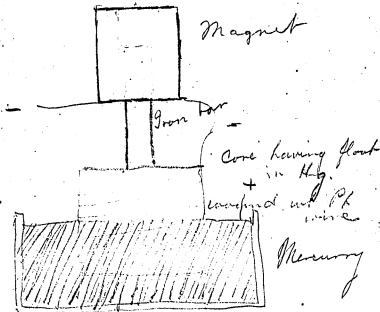 Magnet
Iron bar
Core having float
in Hg.
wound wt Pt
wire
Mercury